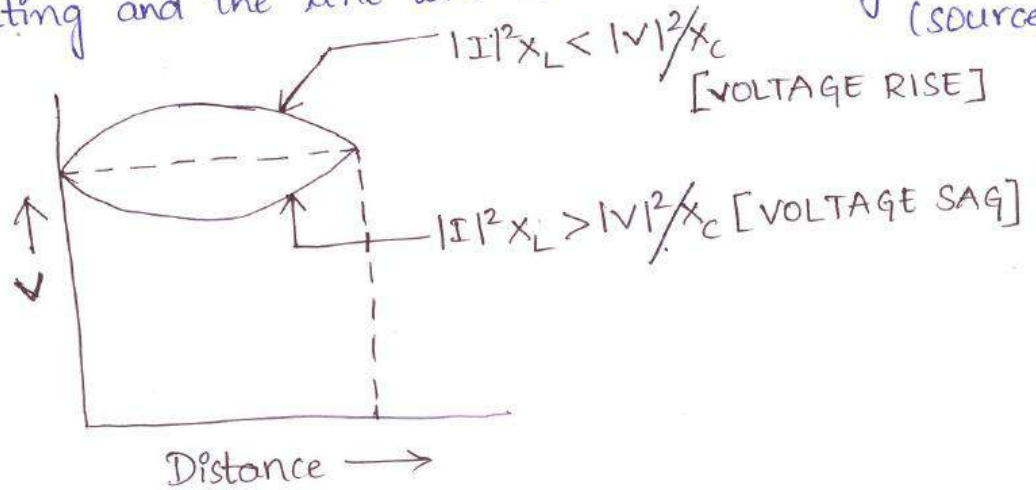 and the
(source
|I|²X_L < |V|²/X_C
[VOLTAGE RISE]
|I|²X_L > |V|²/X_C [VOLTAGE SAG]
Distance →